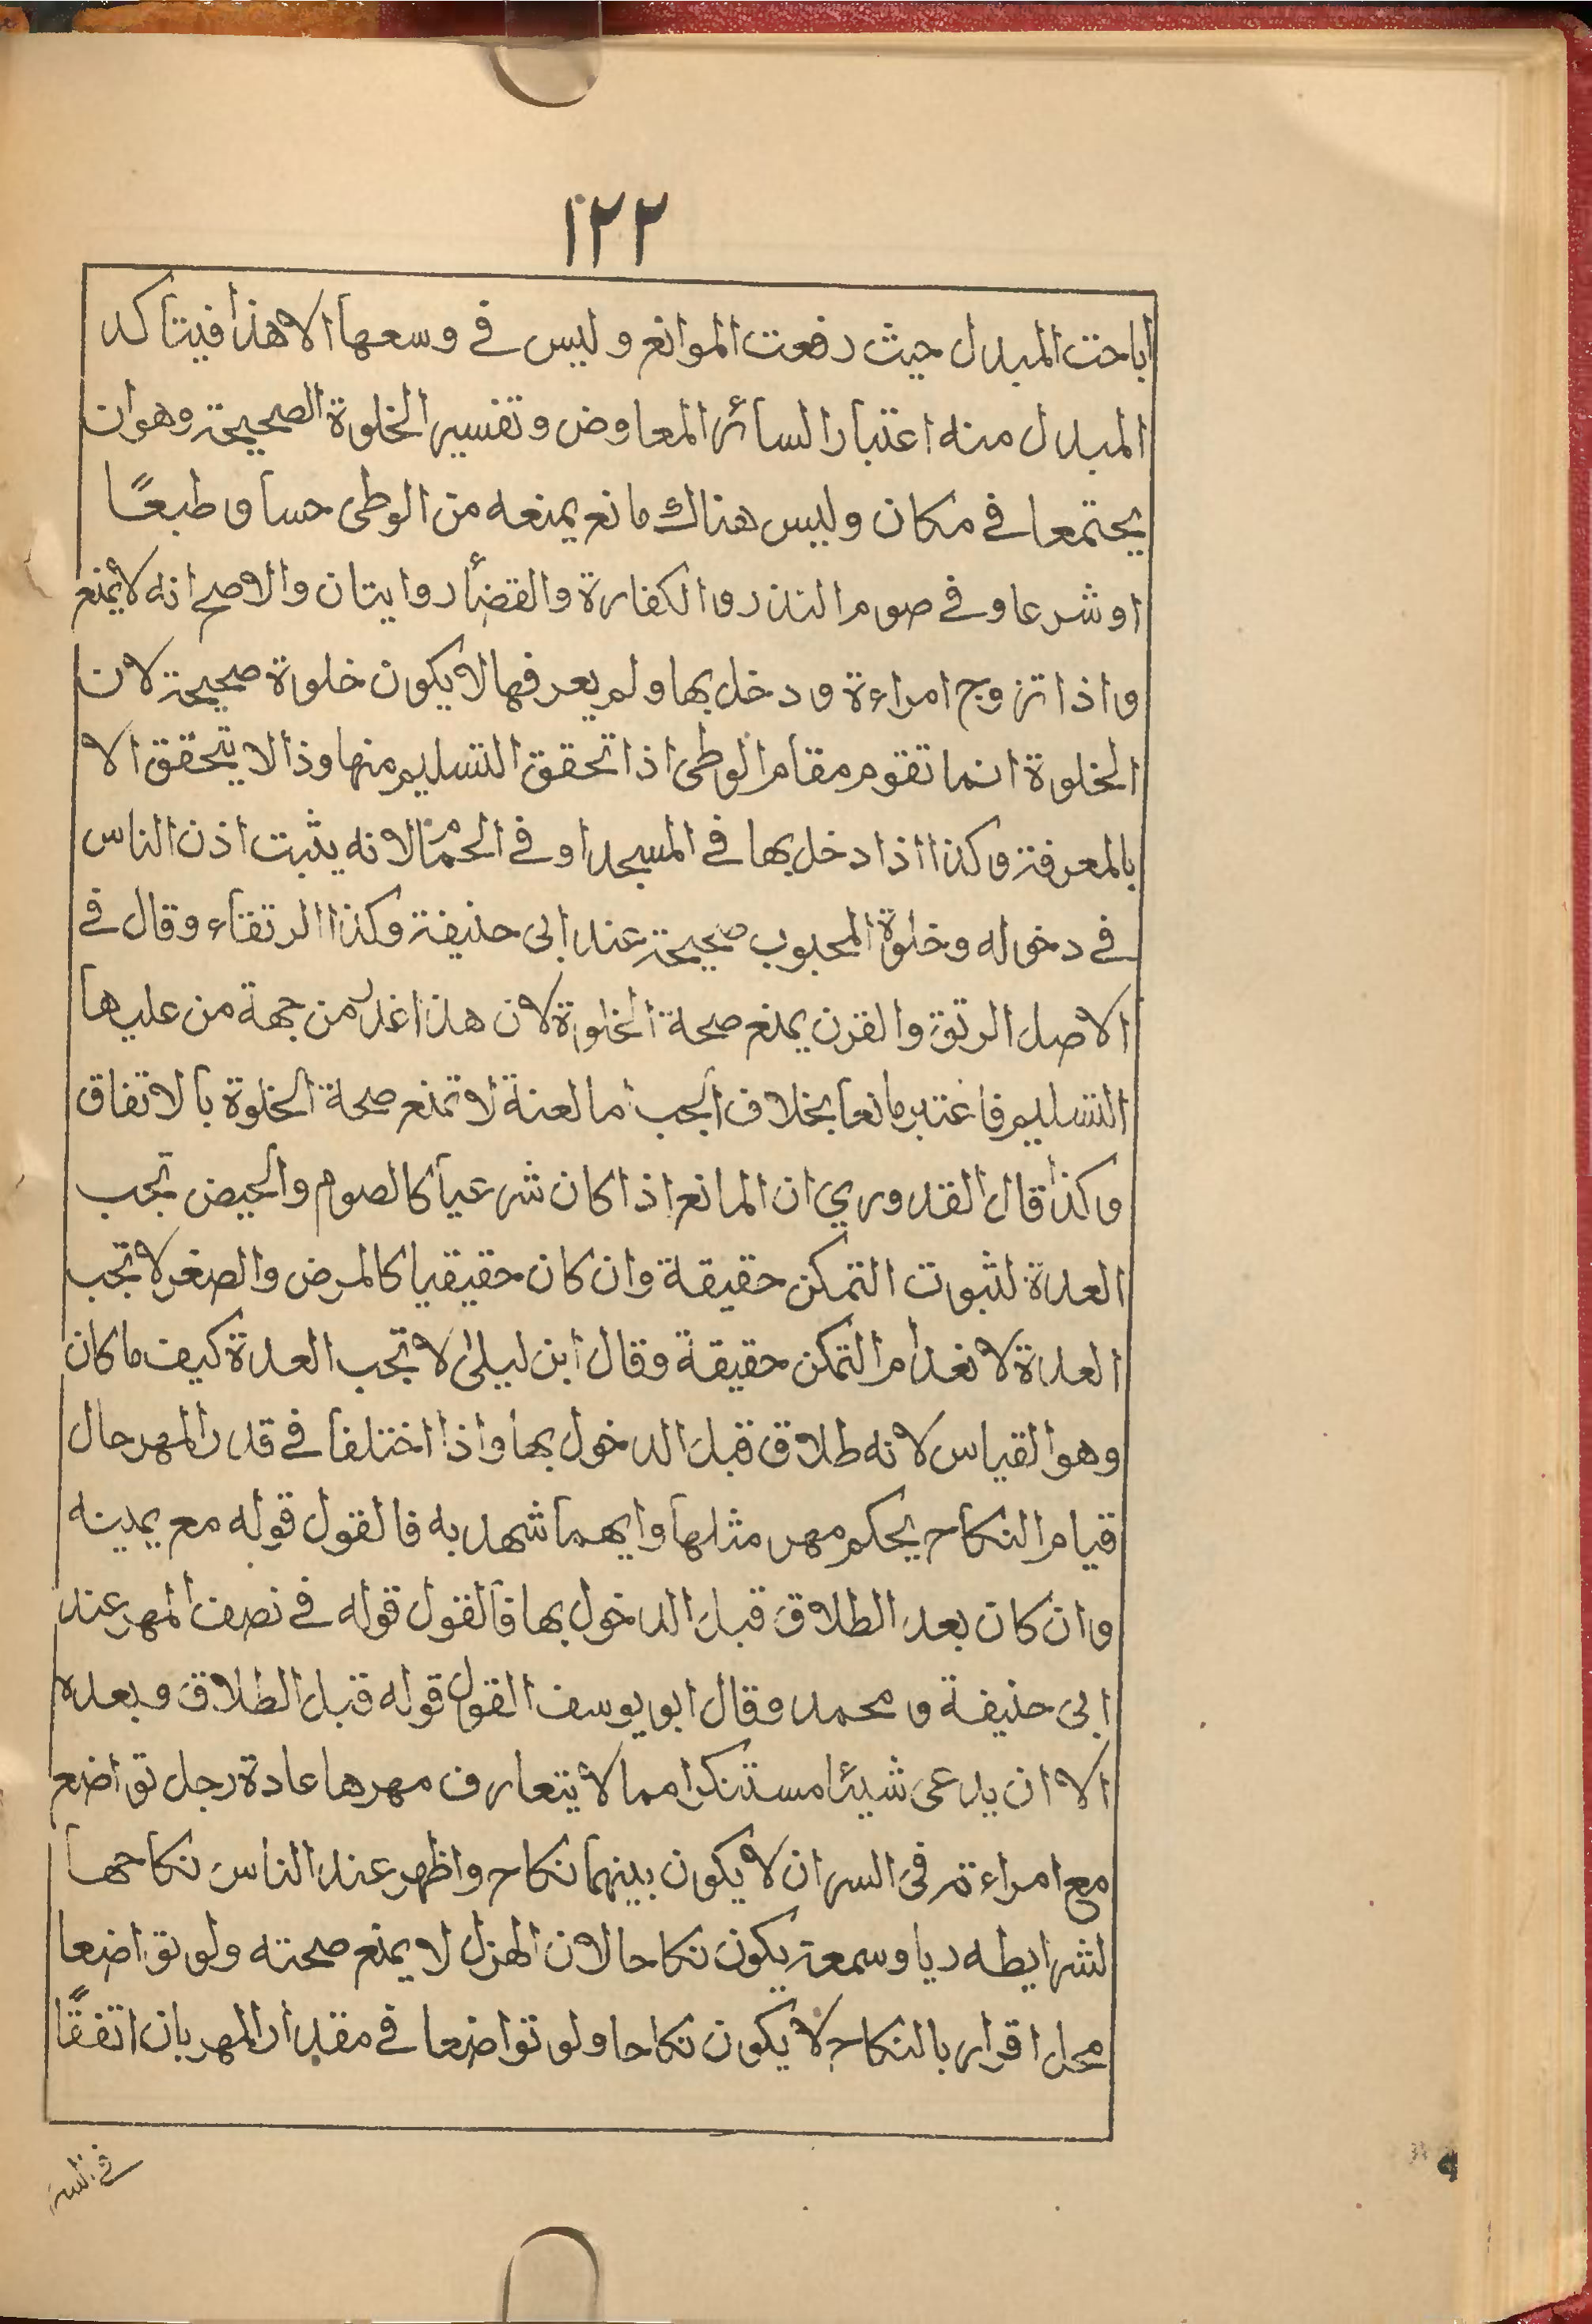 ١٢٢
اباحت المبدل حيث رفعت الموانع وليس في وسعها الا هذا فيتاكد
المبدل منه اعتبارا لسائر المعاوض وتفسير الخلوة الصحيحة وهو ان
يجتمعا في مكان وليس هناك مانع يمنعه من الوطى حسا و طبعًا
او شرعا وفي صوم النذر والكفارة والقضأ روايتان والاصح انه لا يمنع
واذا تزوج امراءة ودخل بها ولم يعرفها لا يكون خلوة صحيحة لان
الخلوة انما تقوم مقام الوطى اذا تحقق التسليم منها وذا لا يتحقق الا
بالمعرفة وكذا اذا دخل بها في المسجد او في الحمام لانه يثبت اذن الناس
في دخوله وخلوة المجبوب صحيحة عند ابى حنيفة وكذا الرتقاء وقال في
الاصل الرتق والقرن يمنع صحة الخلوة لان هذا غدر من جهة من عليها
التسليم فاعتبر مانعا بخلاف الجب اما لعنة لا تمنع صحة الخلوة بالاتفاق
وكذا قال القدوري ان المانع اذا كان شرعيا كالصوم والحيض تجب
العدة لثبوت التمكن حقيقة وان كان حقيقيا كالمرض والصغر لا تجب
العدة لانعدام التمكن حقيقة وقال ابن ليلى لا تجب العدة كيف ما كان
وهو القياس لانه طلاق قبل الدخول بها واذا اختلفا في قدر المهر حال
قيام النكاح يحكم مهر مثلها وايهما شهد به فالقول قوله مع يمينه
وان كان بعد الطلاق قبل الدخول بها فالقول قوله في نصف المهر عند
ابى حنيفة و محمد وقال ابو يوسف القول قوله قبل الطلاق وبعده
الا ان يدعى شيئا مستنكرا مما لا يتعارف مهرها عادة رجل تواضع
مع امراءة في السر ان لا يكون بينهما نكاح واظهر عند الناس نكاحها
لشرايطه ريا وسمعة يكون نكاحا لان الهزل لا يمنع صحته ولو تواضعا
محل اقرار بالنكاح لا يكون نكاحا ولو تواضعا في مقدار المهر بان اتفقًا
في السر